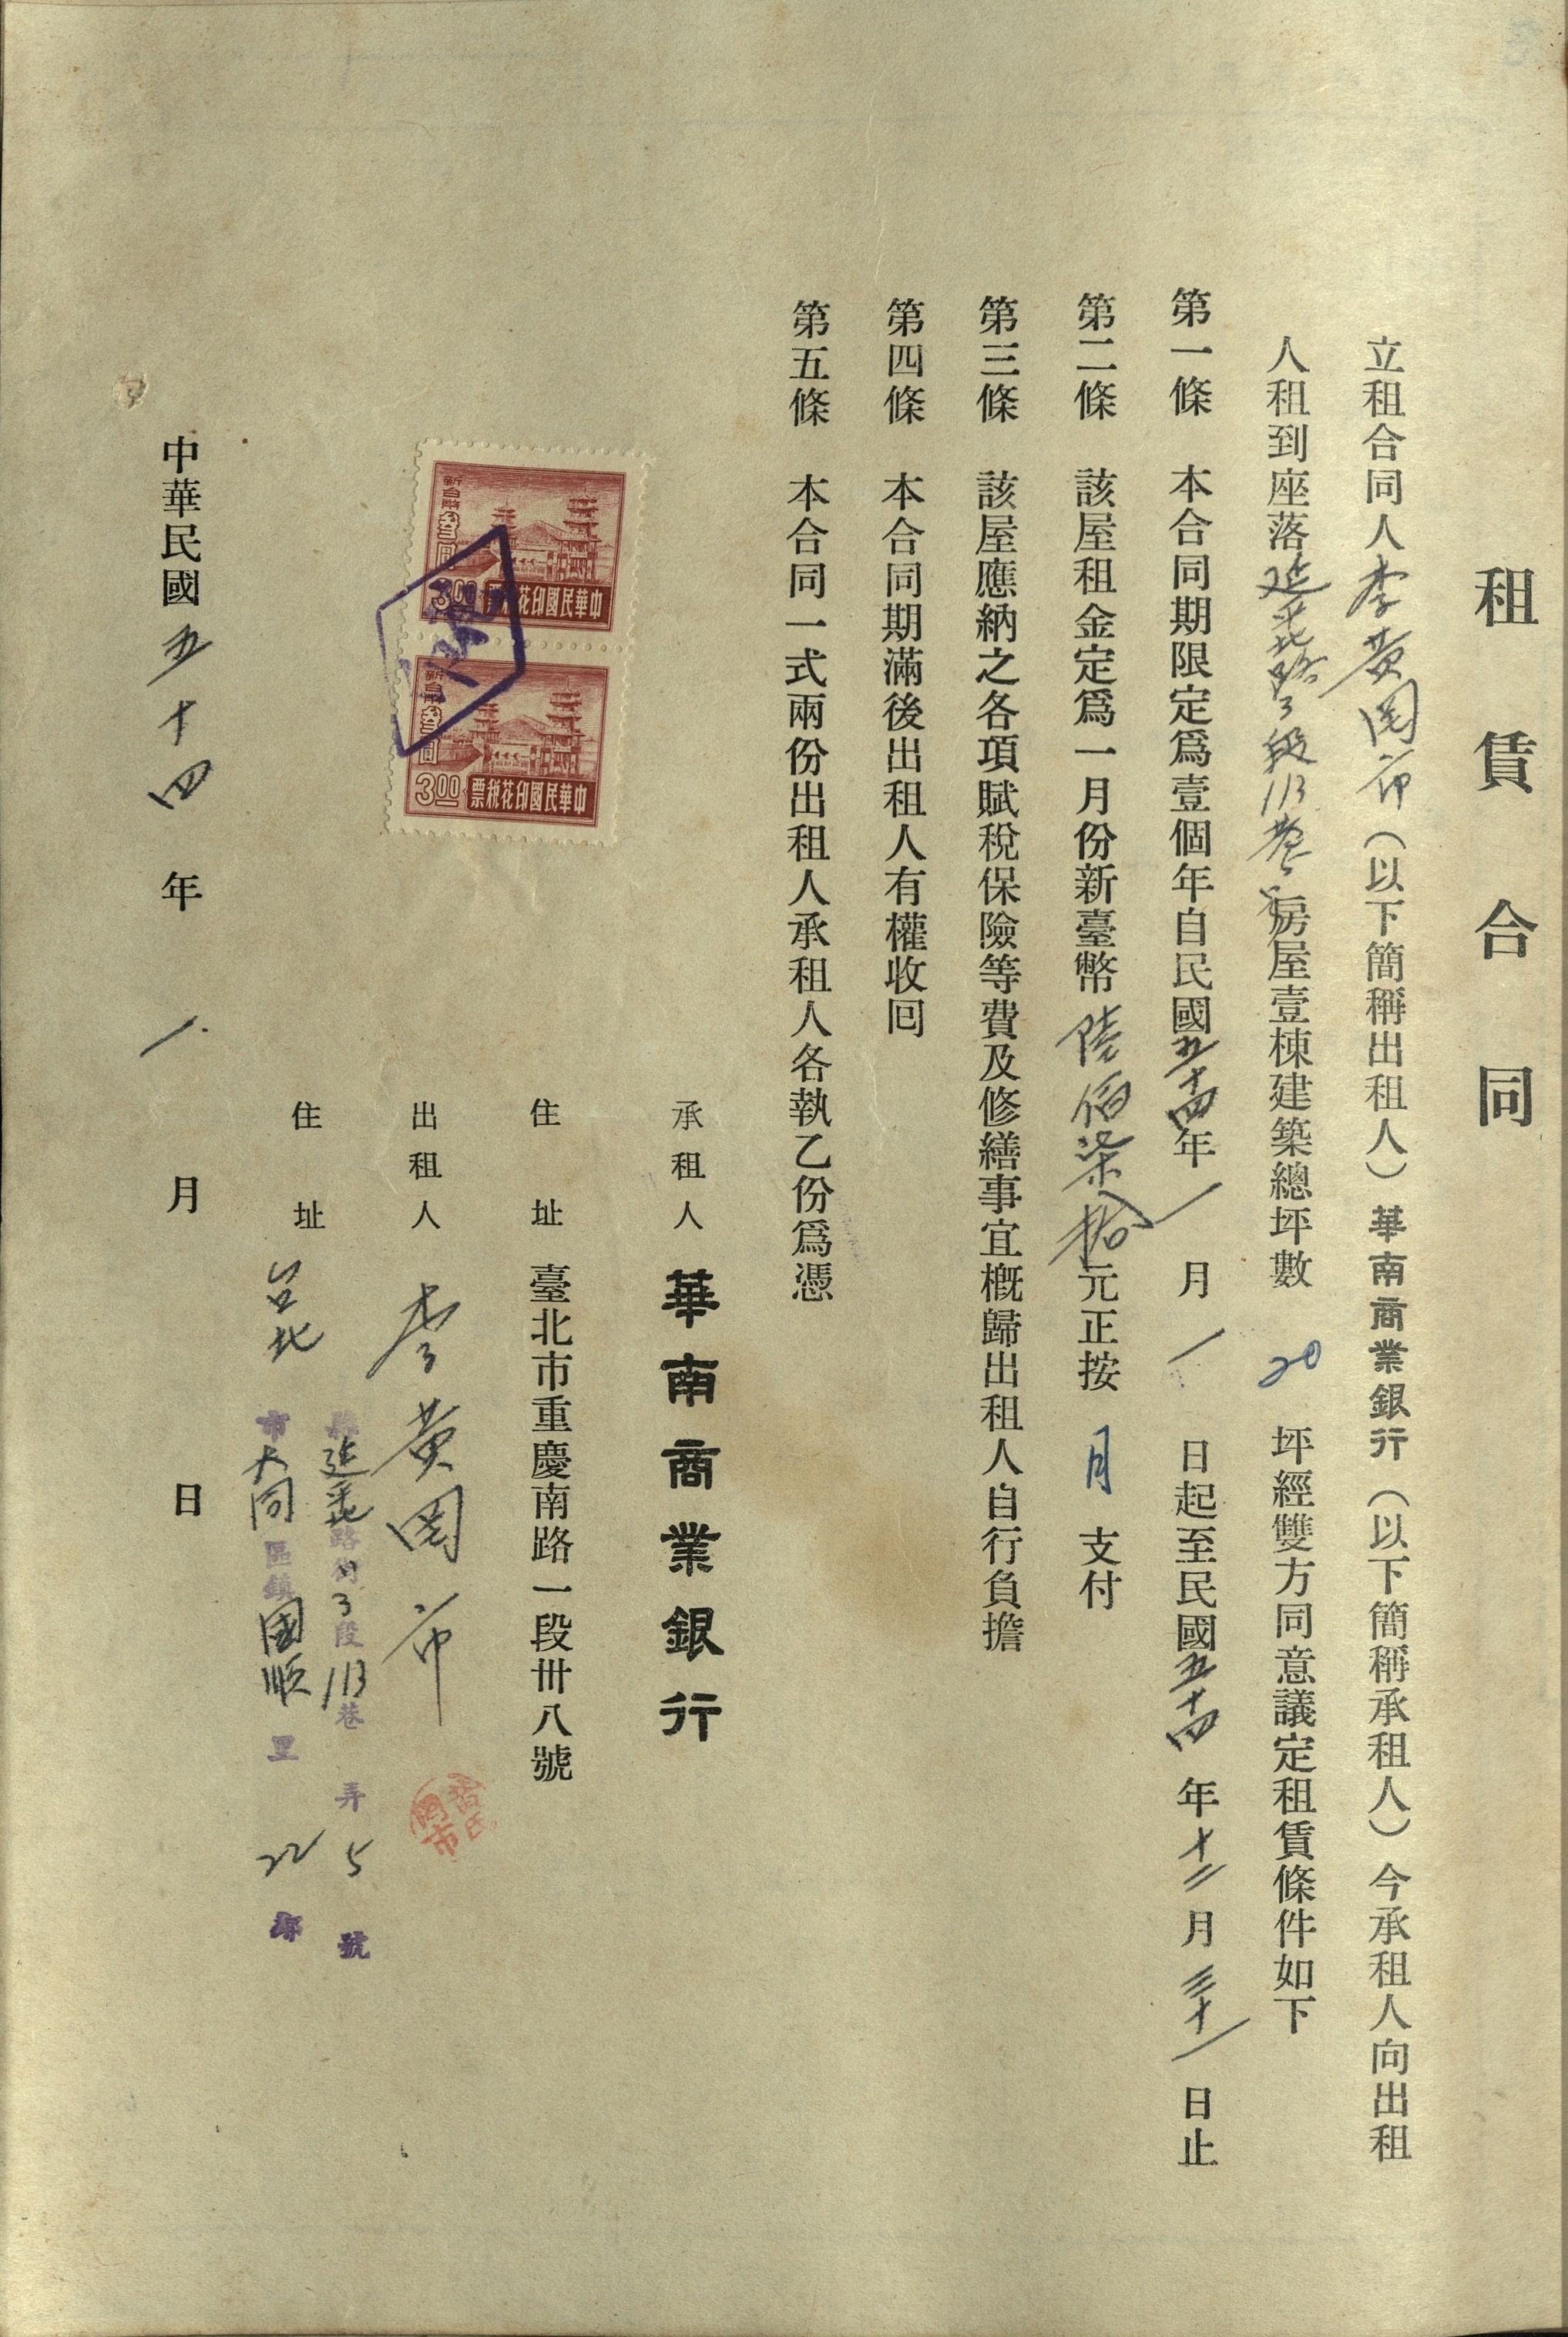 租賃合同
立租合同人李黃罔市(以下簡稱出租人)華南商業銀行(以下簡稱承租人)今承租人向出租
人租到座落延平北路3段113巷5號房屋壹棟建築總坪數20坪經雙方同意議定租賃條件如下
第一條 本合同期限定爲壹個年自民國五十四年1月1日起至民國五十四年十二月三十一日止
第二條 該屋租金定爲一月份新臺幣陸佰柒拾元正按月支付
第三條 該屋應納之各項賦稅保險等費及修繕事宜槪歸出租人自行負擔
第四條 本合同期滿後出租人有權收回
第五條 本合同一式兩份出租人承租人各執乙份爲憑
承租人 華南商業銀行
住址 臺北市重慶南路一段卅八號
出租人 李黃罔市
住址 台北
縣延平北路街3段113巷 弄5號
市大同區鎮國順里22鄰
中華民國印花稅票
新台幣叁圓
3.00
中華民國印花稅票
新台幣叁圓
3.00
中華民國五十四年1月 日